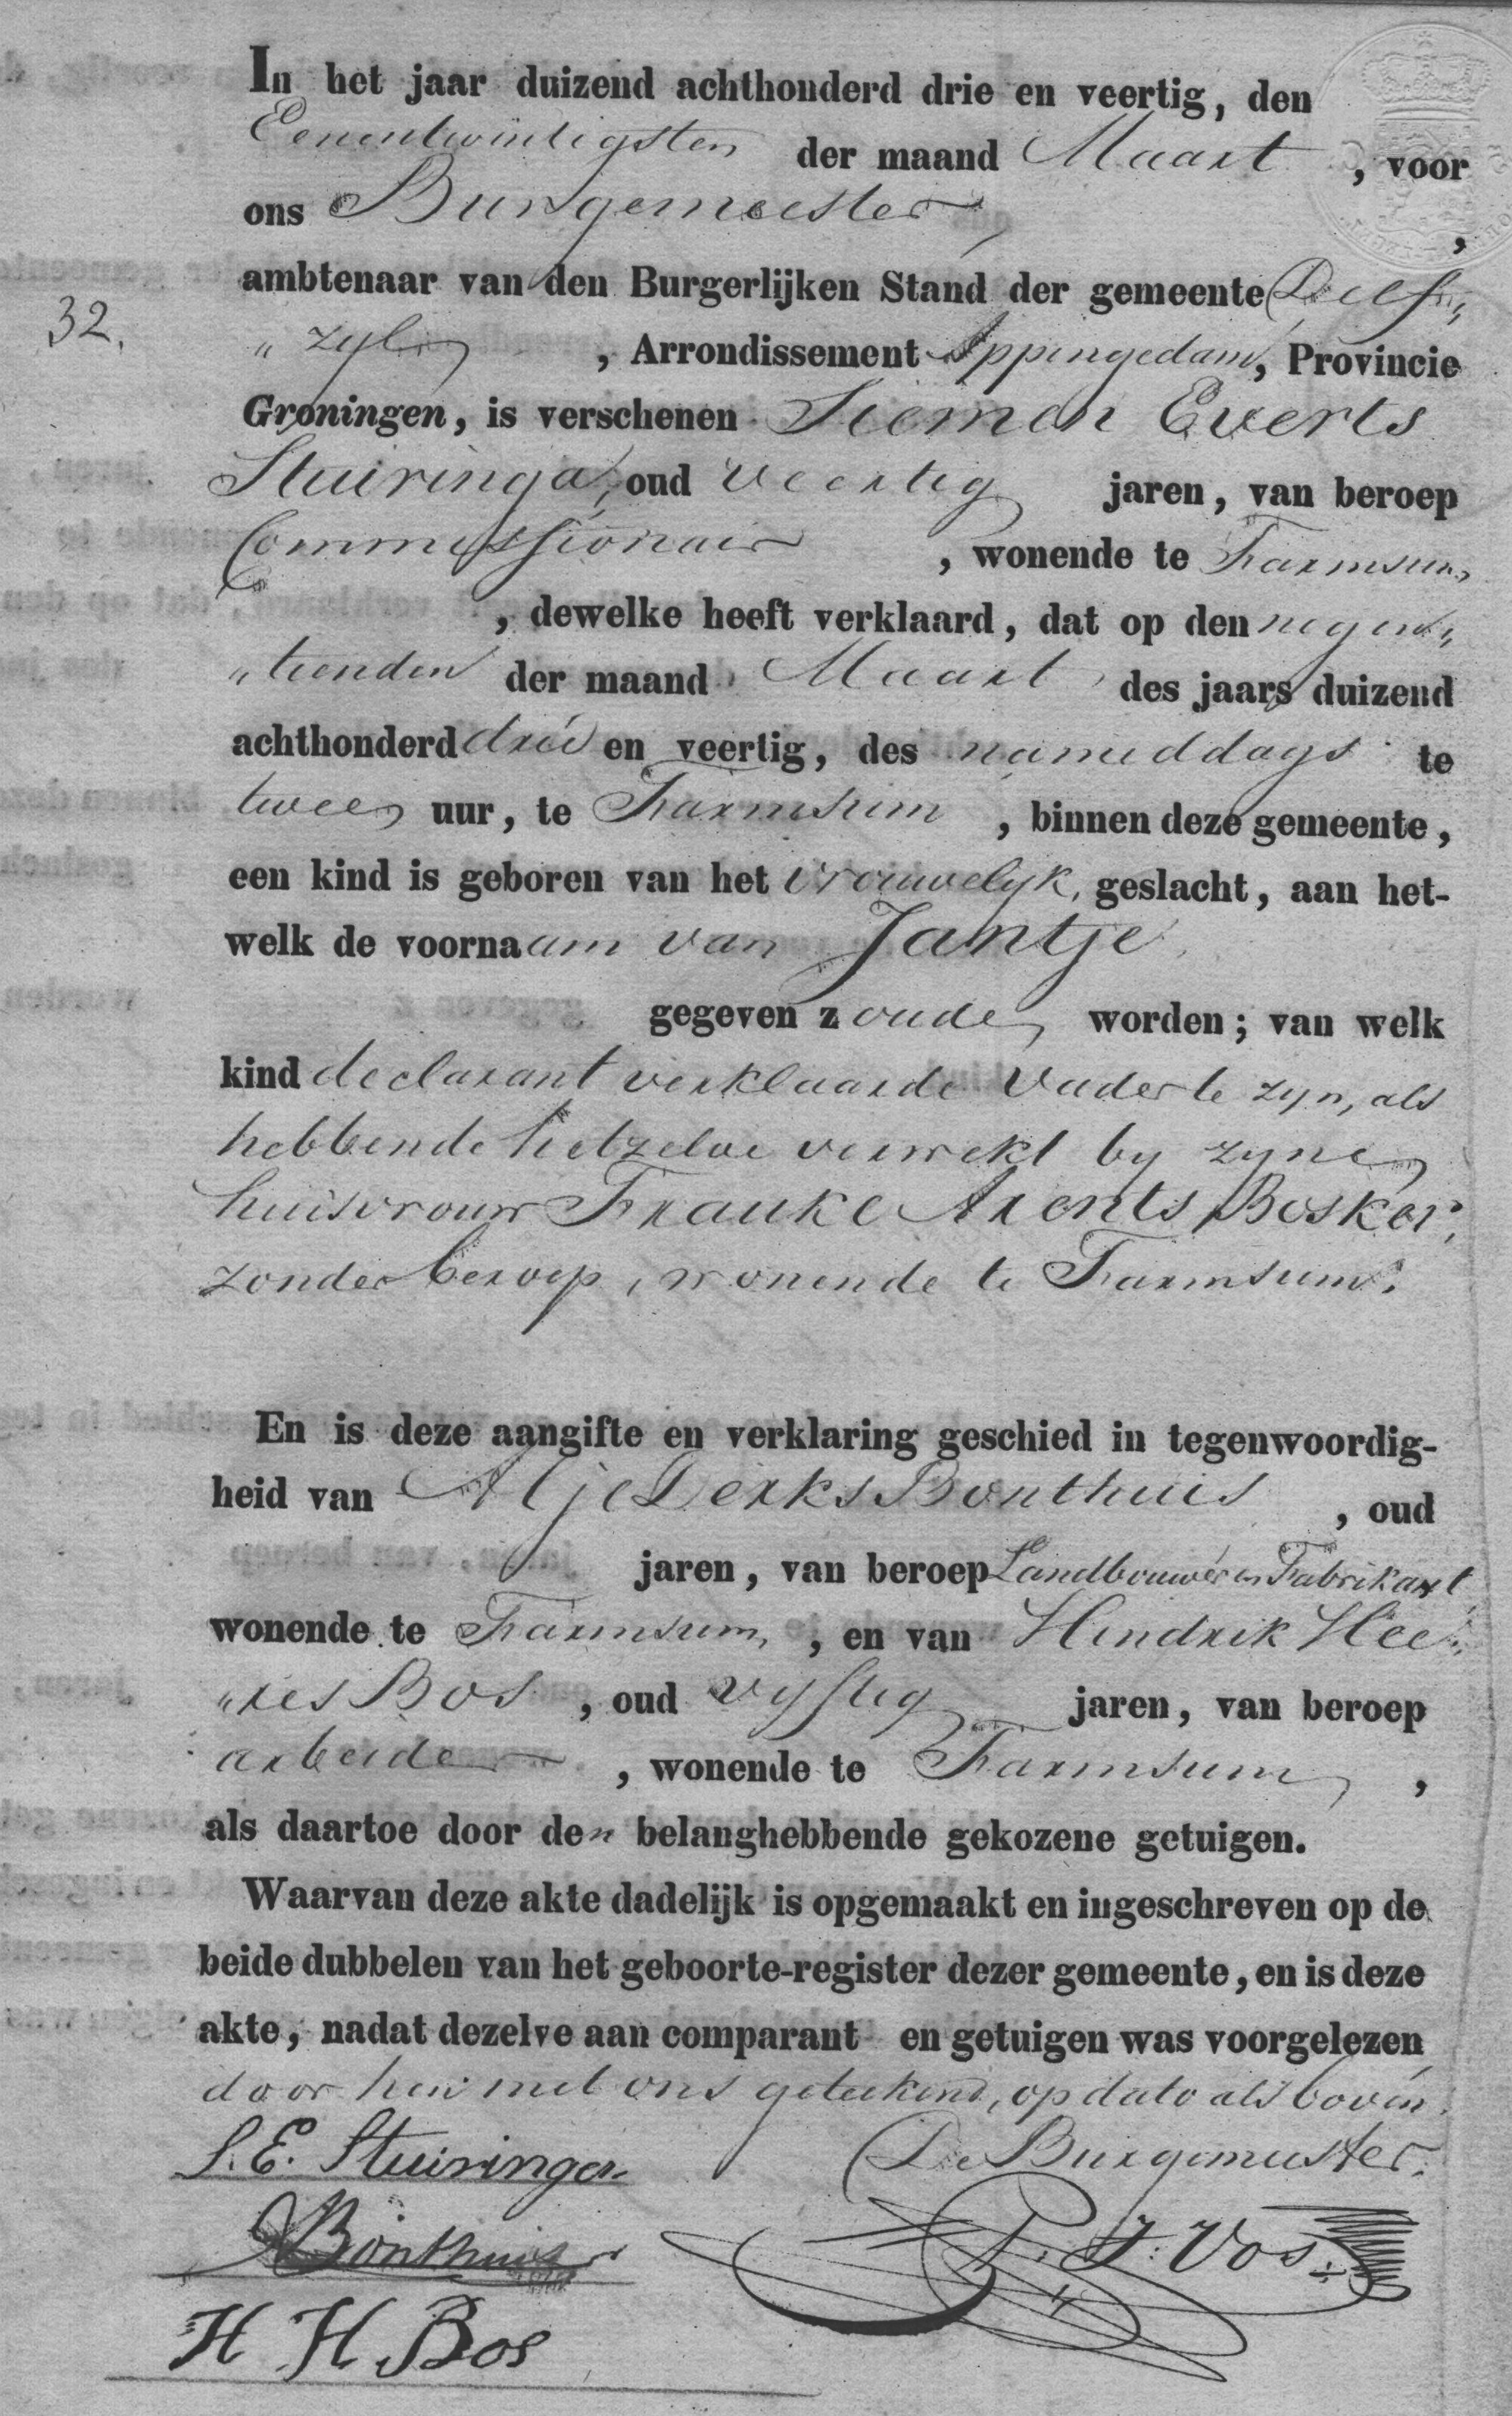 In het jaar duizend achthonderd drie en veertig, den
Eenentwintigsten der maand Maart, voor
ons Burgemeester,
ambtenaar van den Burgerlijken Stand der gemeente Delf„
32.
„zyl, Arrondissement Appingedam, Provincie
Groningen, is verschenen Siemen Everts
Stuiringa, oud veertig jaren, van beroep
Commissionair, wonende te Farmsum
, dewelke heeft verklaard, dat op den negen„
„tienden der maand Maart des jaars duizend
achthonderd drie en veertig, des nameddags te
twee uur, te Farmsum, binnen deze gemeente,
een kind is geboren van het vrouwelyk, geslacht, aan het-
welk de voornaam van Jantje
gegeven zoude worden; van welk
kind declarant verklaarde Vader te zyn, als
hebbende hetzelve verwekt by zyne
huisvrouw Frauke Arents Bosker,
zonder beroep, wonende te Farmsum.
En is deze aangifte en verklaring geschied in tegenwoordig-
heid van Alje Derks Bonthuis, oud
jaren, van beroep Landbouwer en Fabrikant,
wonende te Farmsum, en van Hendrik Hee„
„res Bos, oud vyftig jaren, van beroep
arbeider, wonende te Farmsum,
als daartoe door den belanghebbende gekozene getuigen.
Waarvan deze akte dadelijk is opgemaakt en ingeschreven op de
beide dubbelen van het geboorte-register dezer gemeente, en is deze
akte, nadat dezelve aan comparant en getuigen was voorgelezen
door hen met ons geteekend, op dato als boven.
S. E. Stuiringa De Burgemeester.
ABonthuis P. J. Vos
H H Bos